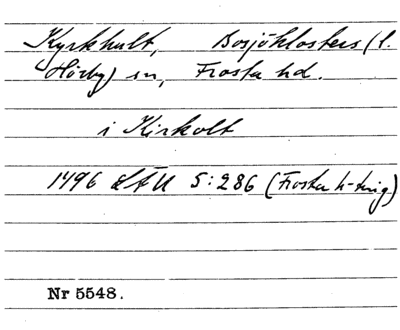 Kyrkhult, Bosjöklosters (t.
Hörby) sn, Frosta hd.
i Kirkolt
1496 LÄU 5:286 (Frosta h-ting)
Nr 5548.